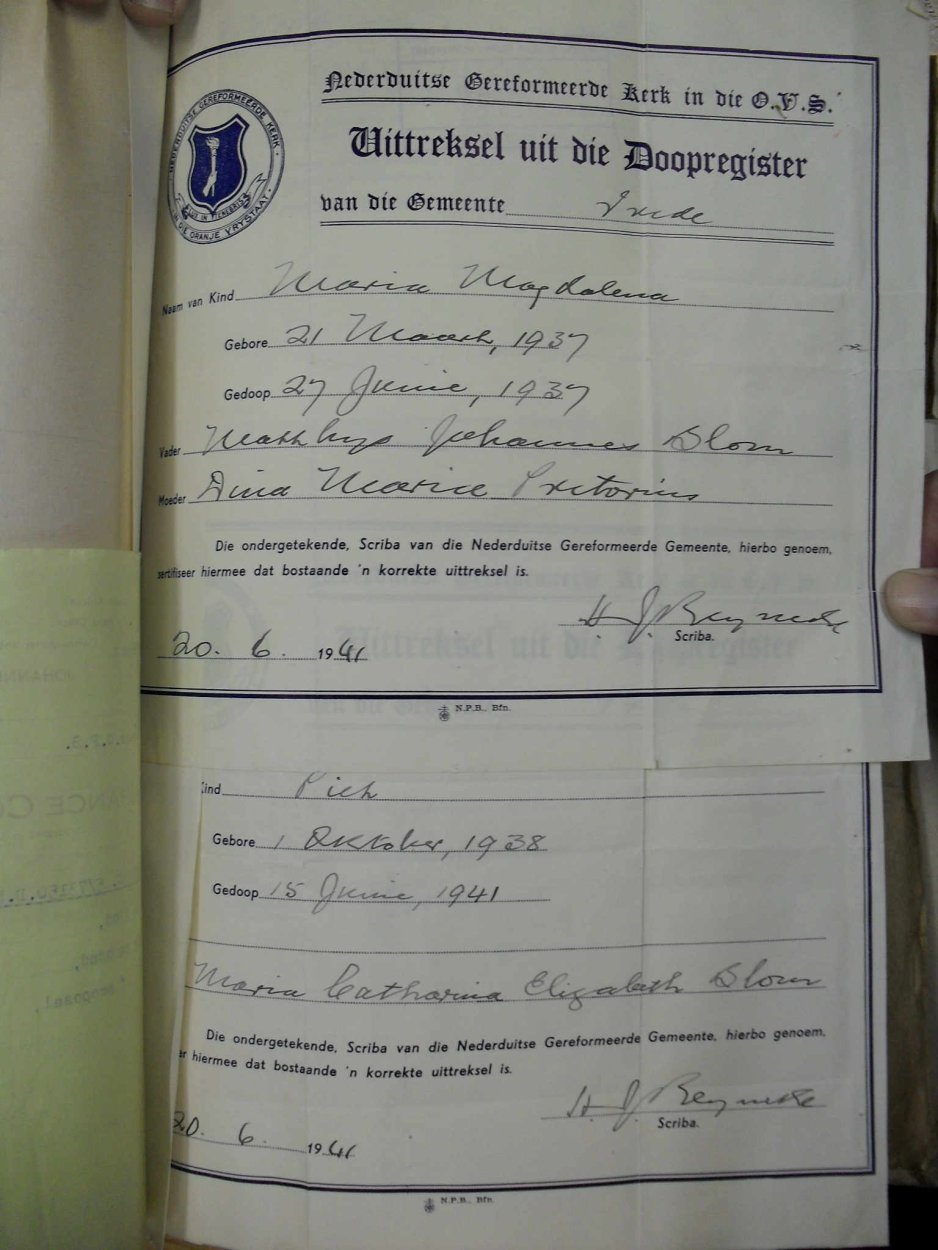 Nederduitse Gereformeerde Kerk in die O.V.S.
Uittreksel uit die Doopregister
van die Gemeente Vrede
NEDERDUITSE GEREFORMEERDE KERK
IN DIE ORANJE VRYSTAAT
LUX IN TENEBRIS
Naam van Kind Maria Magdalena
Gebore 21 Maart, 1937
Gedoop 27 Junie, 1937
Vader Matthys Johannes Blom
Moeder Dina Maria Pretorius
Die ondergetekende, Scriba van die Nederduitse Gereformeerde Gemeente, hierbo genoem,
sertifiseer hiermee dat bostaande 'n korrekte uittreksel is.
H. J. Reynecke
Scriba.
20. 6. 1941
N.P.B., Bfn.
Kind Piet
Gebore 1 Oktober, 1938
Gedoop 15 Junie, 1941
Maria Catharina Elizabeth Blom
Die ondergetekende, Scriba van die Nederduitse Gereformeerde Gemeente, hierbo genoem,
er hiermee dat bostaande 'n korrekte uittreksel is.
H. J. Reynecke
Scriba.
20. 6. 1941
N.P.B., Bfn.